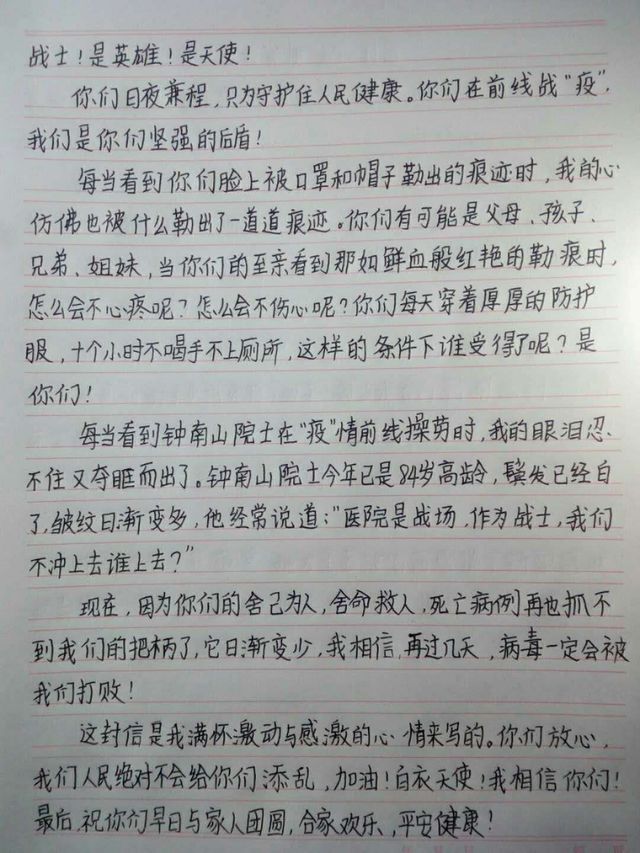 战士！是英雄！是天使！
你们日夜兼程，只为守护住人民健康。你们在前线战“疫”，
我们是你们坚强的后盾！
每当看到你们脸上被口罩和帽子勒出的痕迹时，我的心
仿佛也被什么勒出了一道道痕迹。你们有可能是父母、孩子、
兄弟、姐妹，当你们的至亲看到那如鲜血般红艳的勒痕时，
怎么会不心疼呢？怎么会不伤心呢？你们每天穿着厚厚的防护
服，十个小时不喝手不上厕所，这样的条件下谁受得了呢？是
你们！
每当看到钟南山院士在“疫”情前线操劳时，我的眼泪忍
不住又夺眶而出了。钟南山院士今年已是84岁高龄，鬓发已经白
了，皱纹日渐变多，他经常说道：“医院是战场，作为战士，我们
不冲上去谁上去？”
现在，因为你们的舍己为人，舍命救人，死亡病例再也抓不
到我们的把柄了，它日渐变少，我相信，再过几天，病毒一定会被
我们打败！
这封信是我满怀激动与感激的心情来写的。你们放心，
我们人民绝对不会给你们添乱，加油！白衣天使！我相信你们！
最后，祝你们早日与家人团圆，合家欢乐、平安健康！